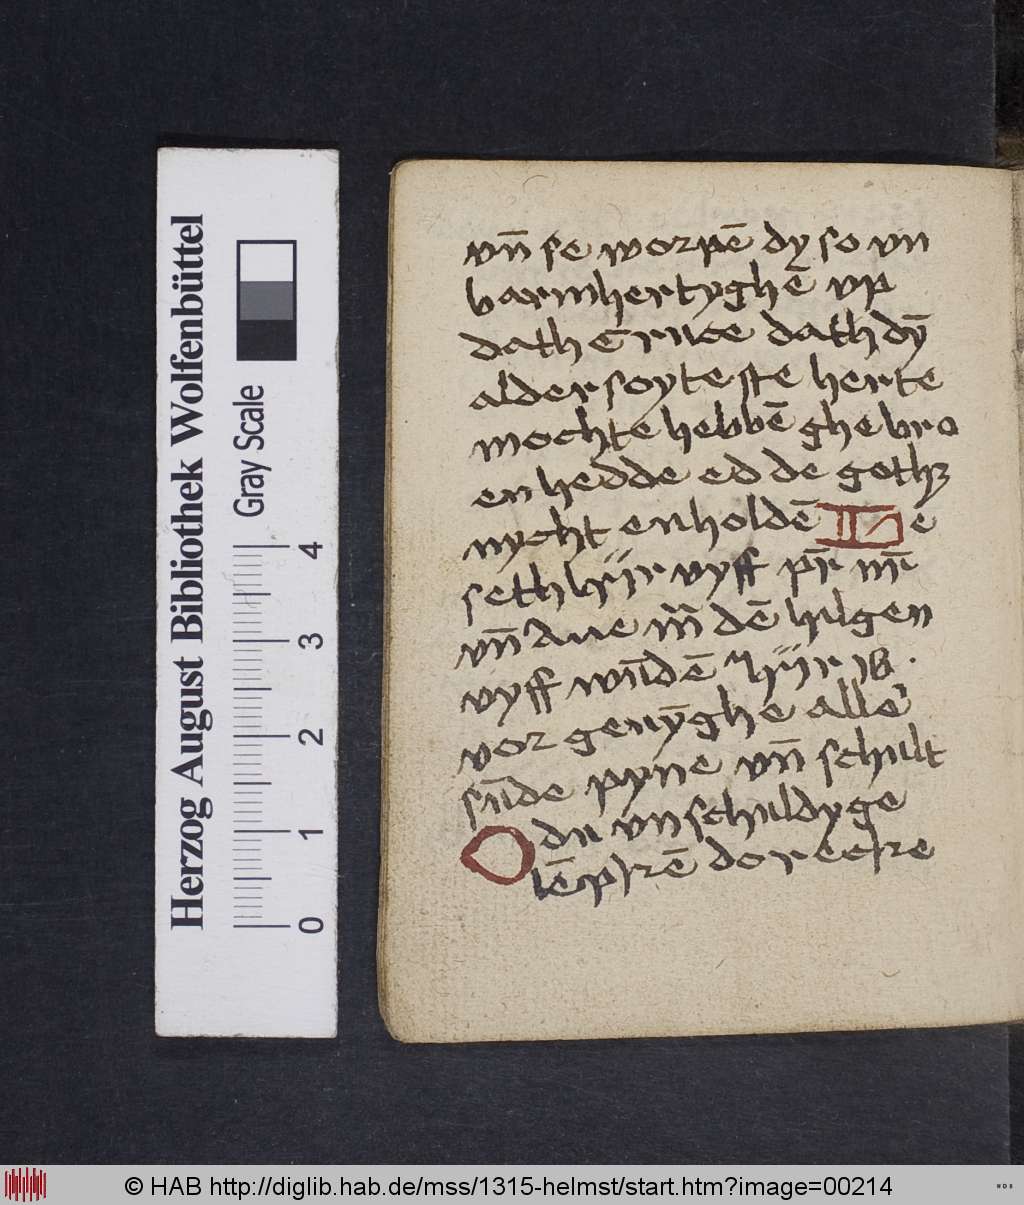 vn̄ se worpē dy so vn
barmhertyghē vp
dath Cruce dath dȳ
alder soyte ste herte
mochte hebbē ghe bro
en hedde ed de goth
nycht enholdē e
seth hyr vyff pr̄ nr̄
vn̄ Aue mͣ dē hilgen
vyff wūdē
vor genȳghe alle
sūde pyne vn̄ schult
O du vnschuldyge
Herzog August Bibliothek Wolfenbüttel
Gray Scale
0 1 2 3 4
© HAB http://diglib.hab.de/mss/1315-helmst/start.htm?image=00214